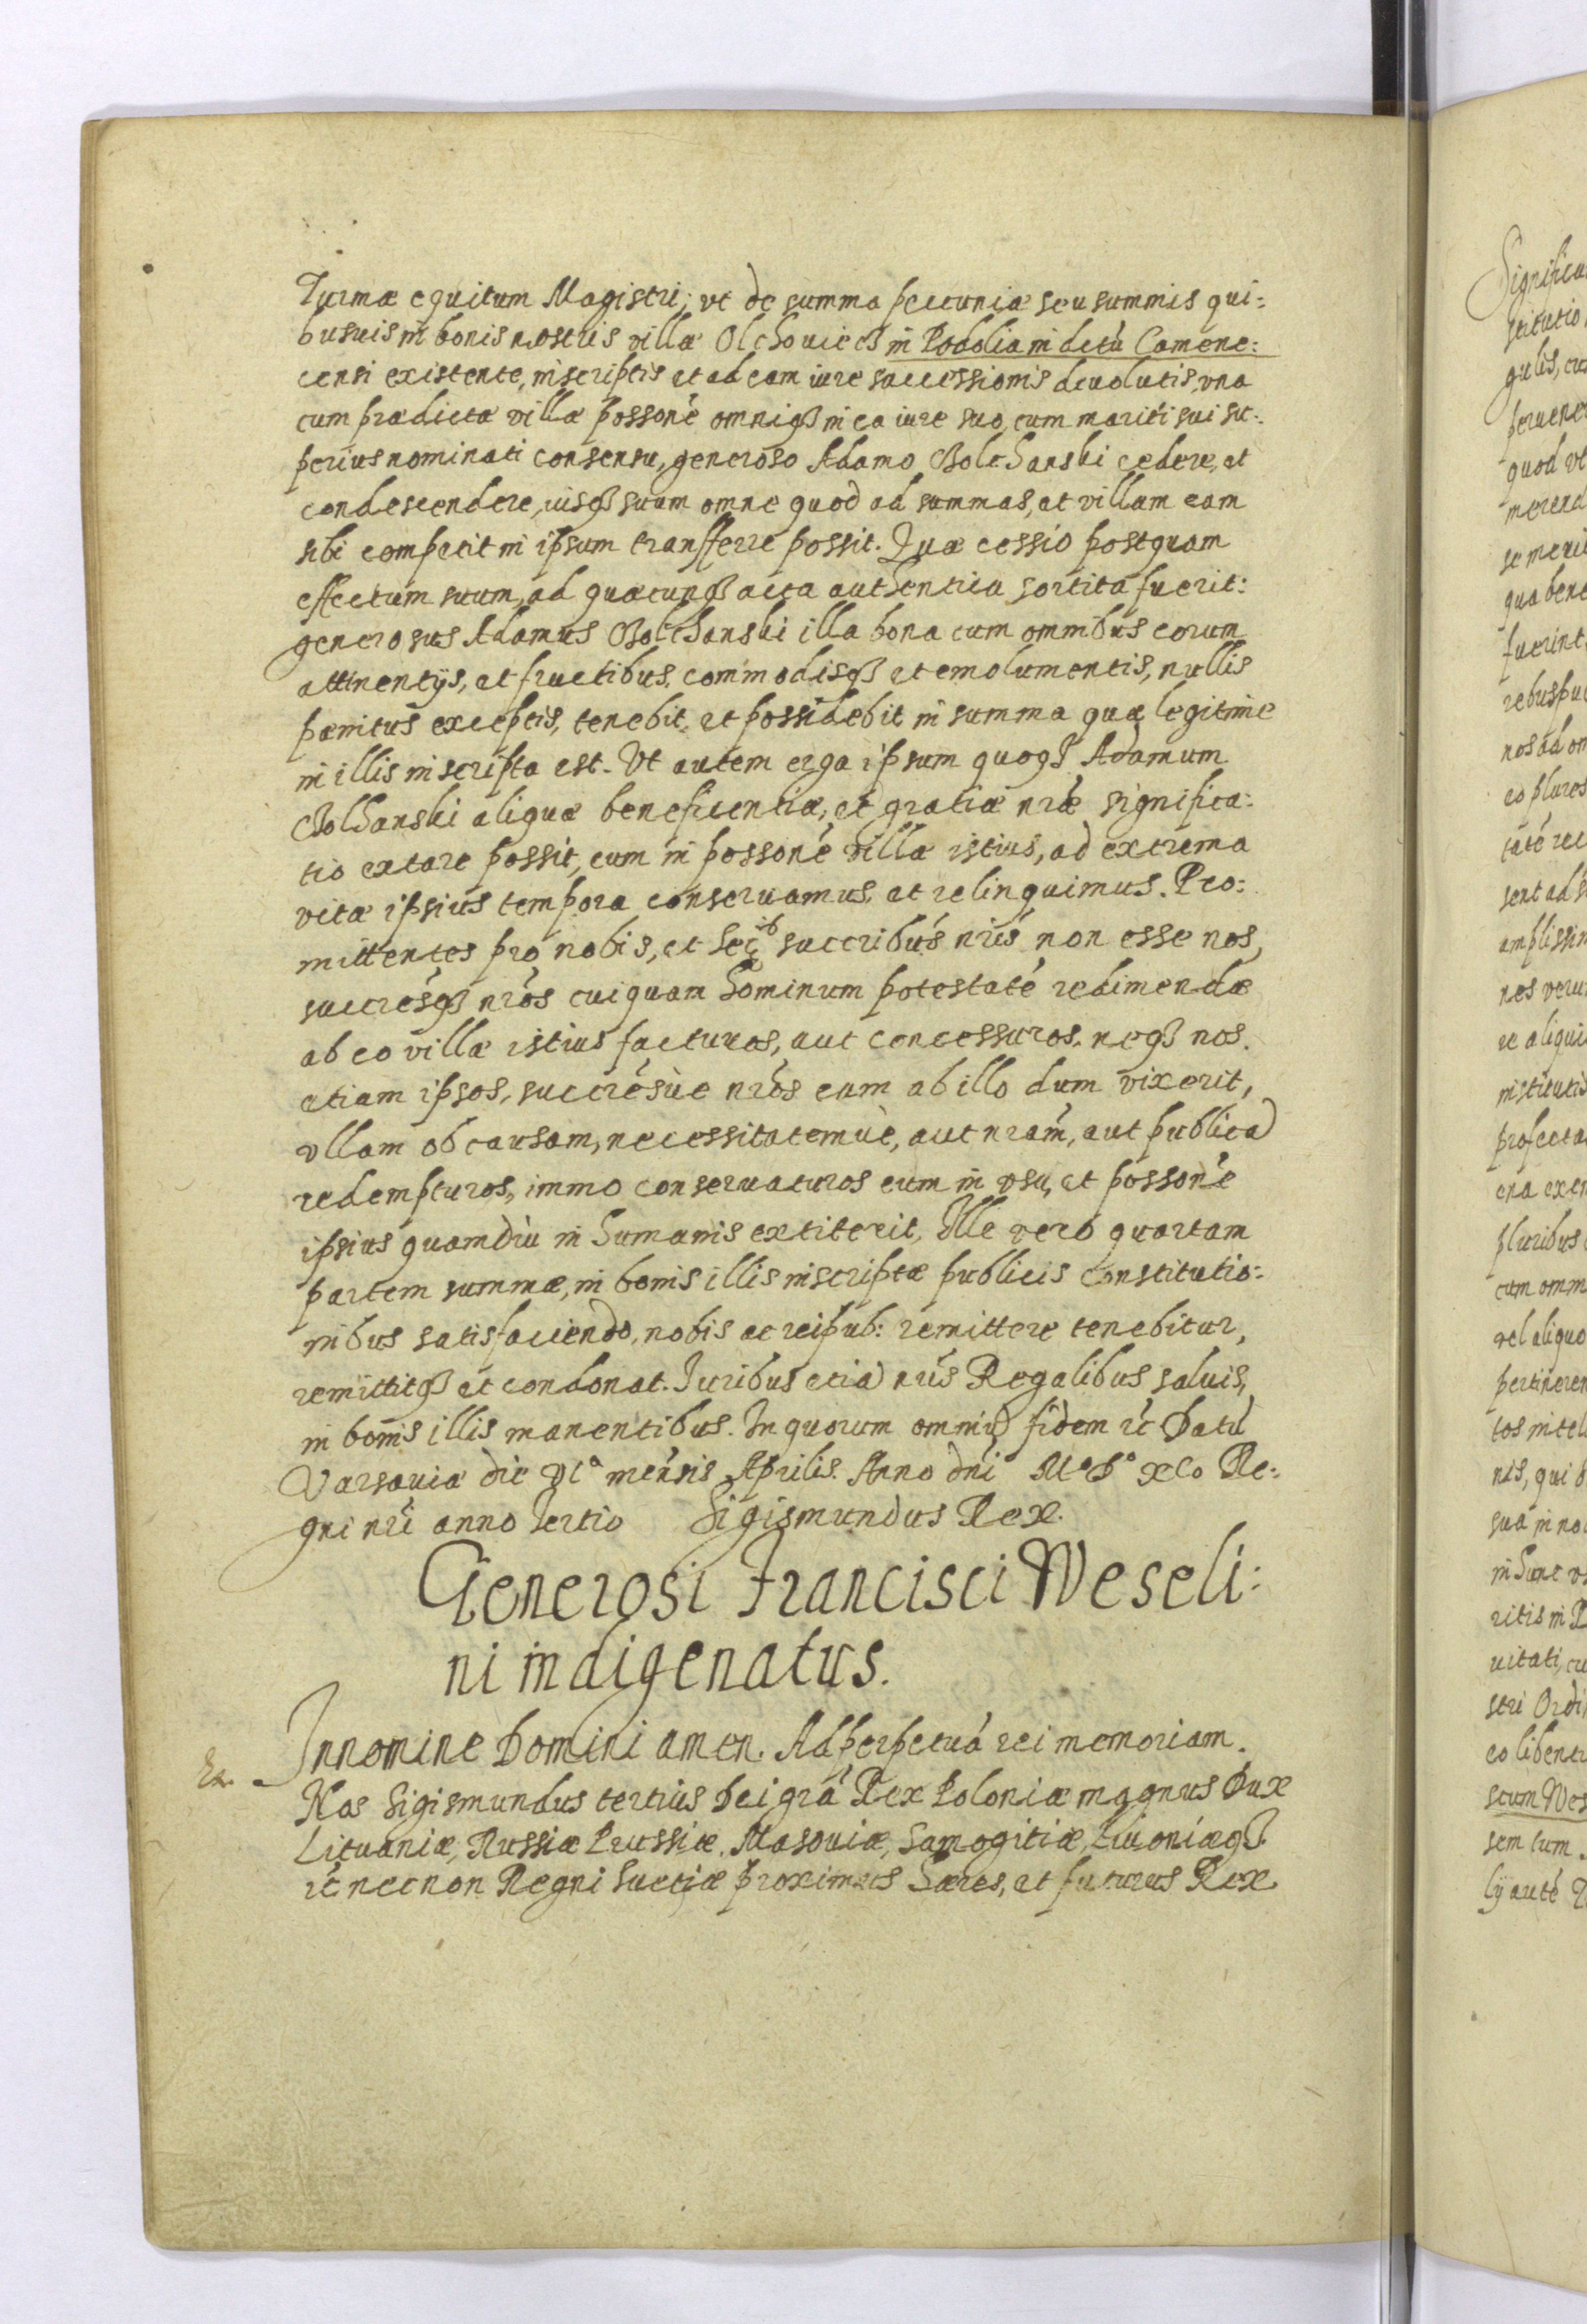 Turmæ equitum Magistri; vt de summa pecuniæ seu summis qui:
busuis in bonis nostris villæ Olchouiecz in Podolia in dctú Camene:
censi existente, inscriptis et ad eam iure successionis deuolutis, vna
cum prædictæ villæ possoné omniqз in ea iure suo, cum mariti sui su:
perius nominati consensu, generoso Adamo Bolchanski cedere, et
condescendere, iusqз suum omne quod ad summas, et villam eam
sibi competit in ipsum transfferre possit. Quæ cessio postquam
effectum suum, ad quæcunqз acta authentica sortita fuerit:
generosus Adamus Bolchanski illa bona cum omnibus eorum
attinentijs, et fructibus, commodisqз et emolumentis, nullis
pænitus exceptis, tenebit et possidebit in summa quæ legitime
in illis inscripta est. Vt autem erga ipsum quoqз Adamum
Bolhanski aliqua beneficentiæ, et gratiæ nræ significa:
tio extare possit, eum in possoné villæ istius, ad extrema
vitæ ipsius tempora conseruamus, et relinquimus. Pro:
mittentes pro nobis, et succribús nrís non esse nos,
succrésqз nrós cuiquam hominum potestaté redimendæ
ab eo villæ istius facturos, aut concessuros, neqз nos.
etiam ipsos, succrésùe nrós eum ab illo dum vixerit,
vllam ob causam, necessitatemùe, aut nrám, aut publica
redempturos, immo conseruaturos eum in vsu, et possoné
ipsius quamdiu in humanis extiterit, Ille vero quartam
partem summæ, in bonis illis inscriptæ publicis constitutio:
nibus satisfaciendo, nobis ac reipub: remittere tenebitur,
remittitqз et condonat. Iuribus etia nrís Regalibus saluis,
in bonis illis manentibus. In quorum omniu fidem ŕc Datú
Varsauiæ die VIᵃ ménsis Aprilis. Anno dní Mº Dº XCo Re:
gni nrí anno tertio Sigismundus Rex.
Generosi Francisci Weseli:
ni indigenatus.
In nomine Domini amen. Ad perpetuá rei memoriam.
Nos Sigismundus tertius Dei grá Rex Poloniæ magnus Dux
Lituaniæ, Russiæ Prussiæ, Masouiæ, Samogitiæ, Liuoniæqз
ŕc necnon Regni Suetiæ proximus hæres, et futurus Rex